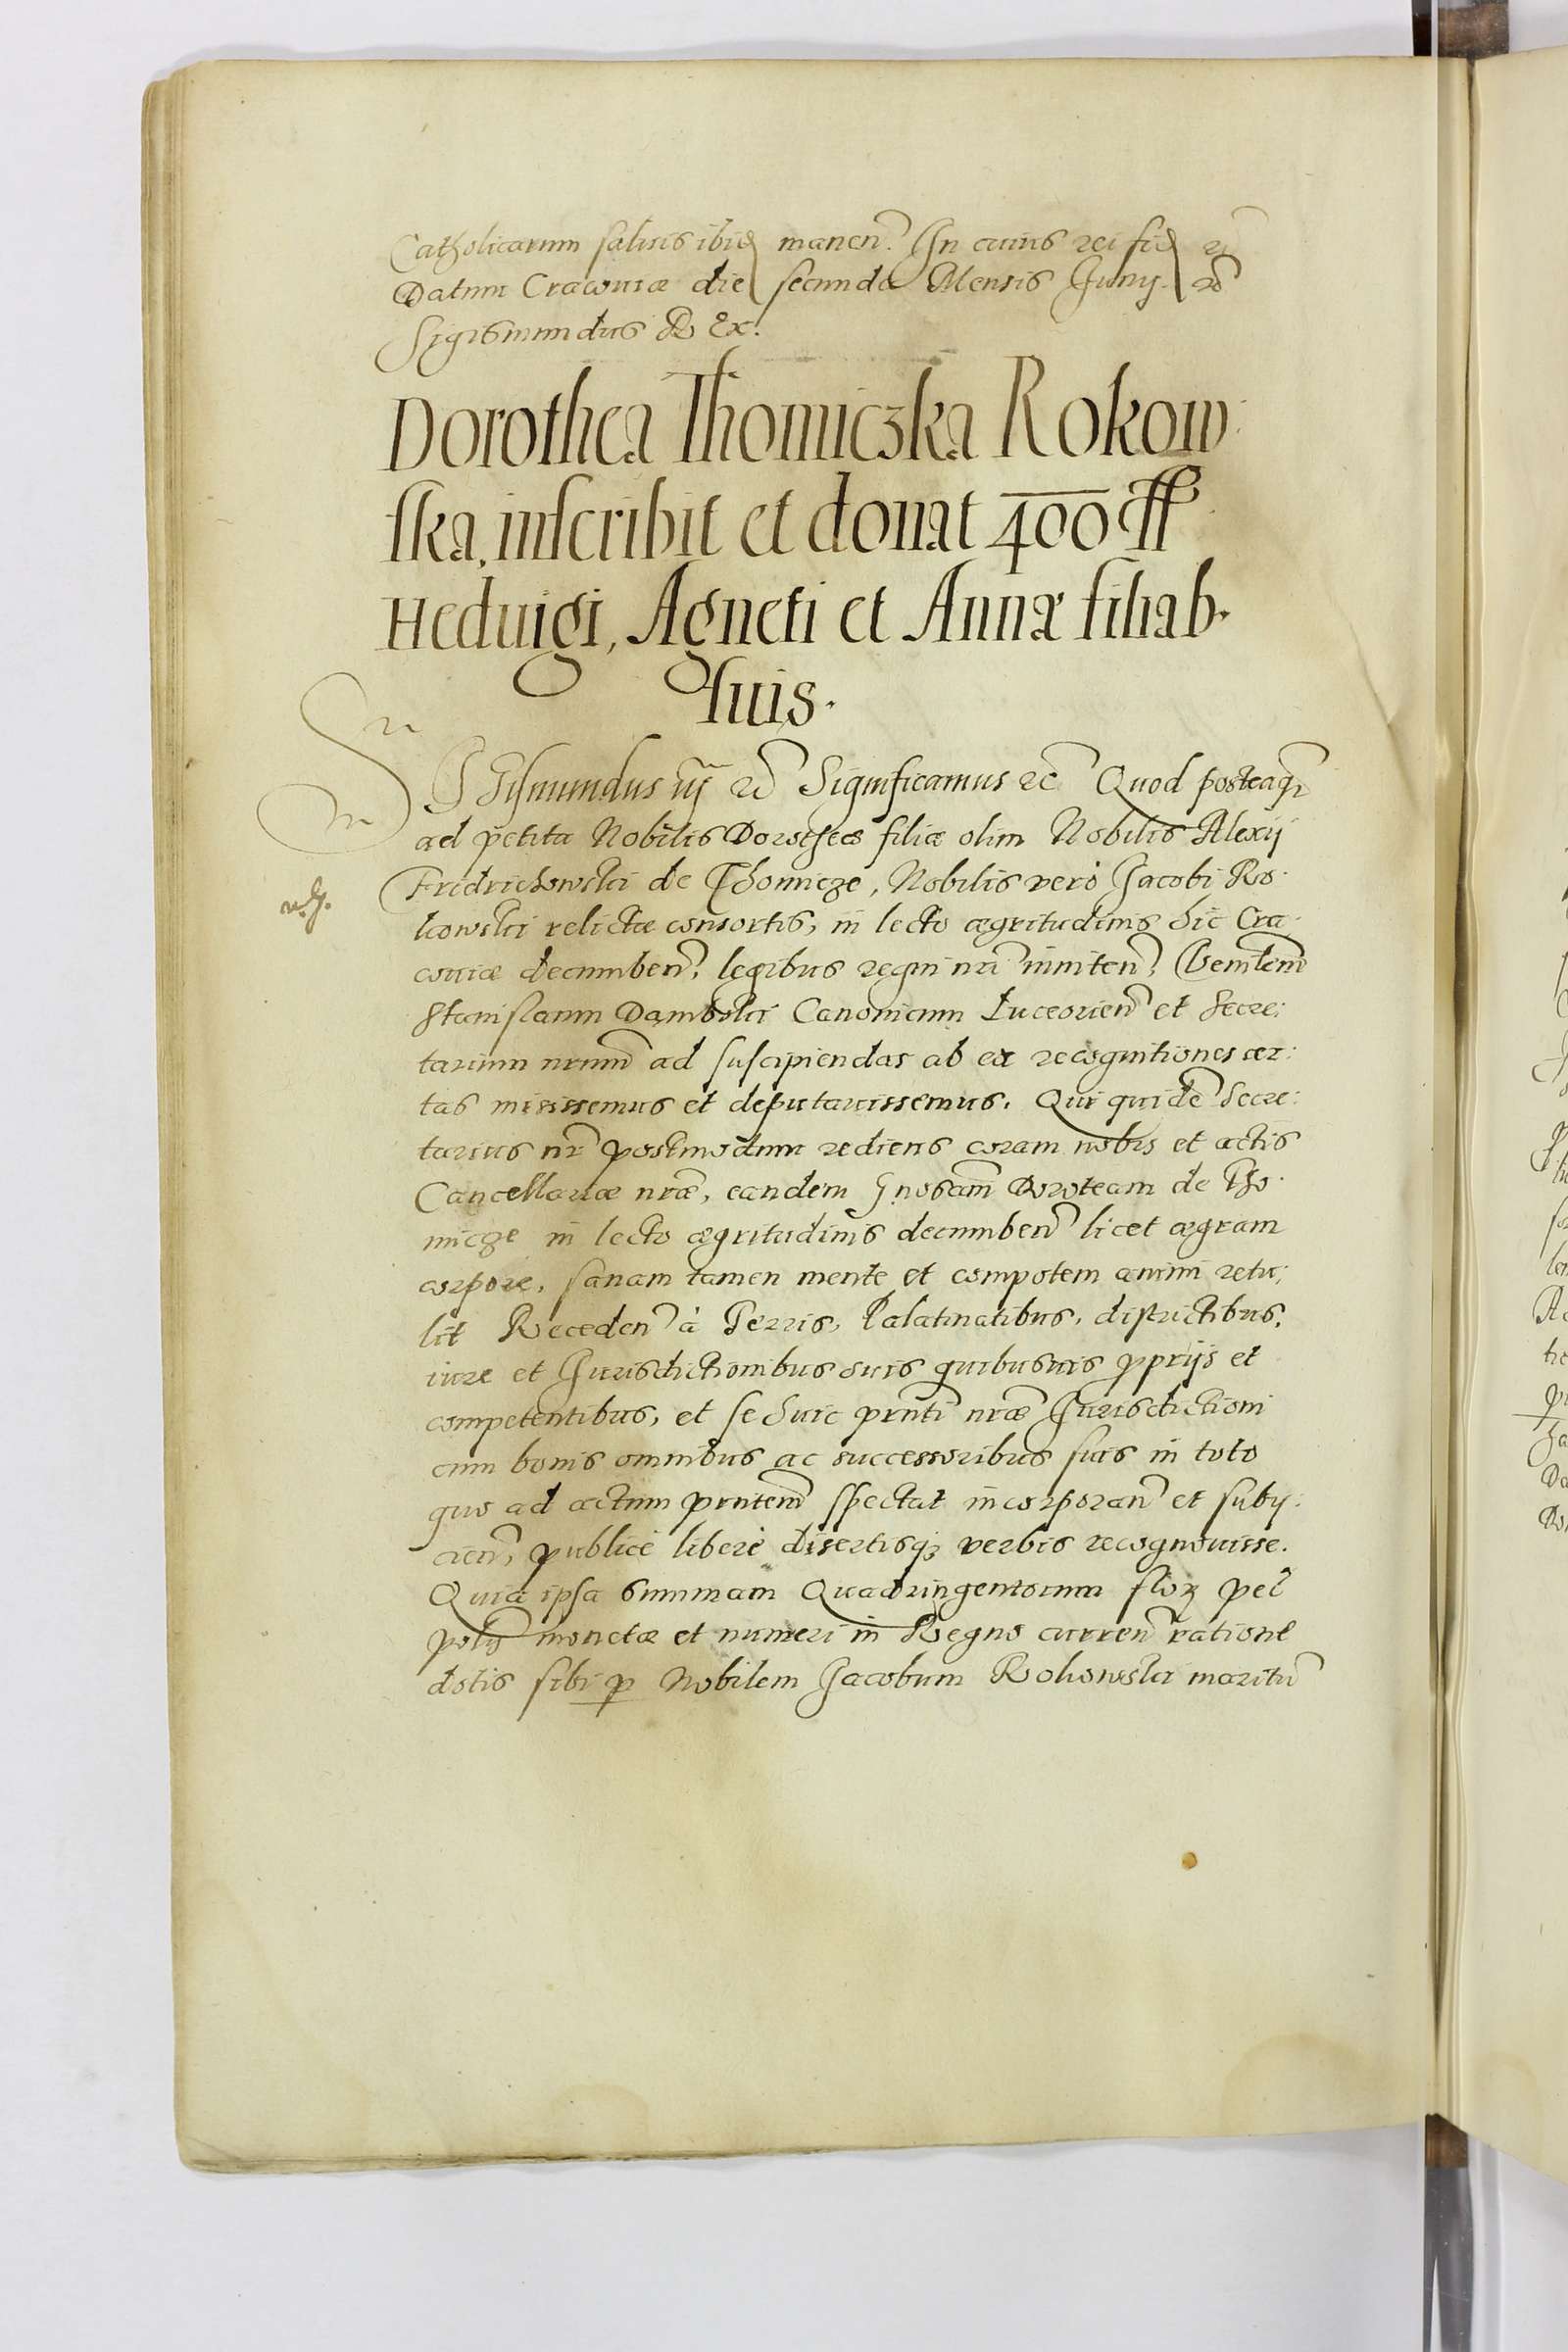 Catholicarum saluis ibid manen. In cuius rei fid etc
Datum Cracouiae die secunda Mensis Junij. etc
Sigismundus Rex.
Dorothea Thomiczka Rokow
ska, inscribit et donat 400 ff
Heduigi, Agneti et Annæ filiab.
suis.
Sigismundus iij etc Significamus etc Quod posteaq̃
ad petita Nobilis Dorotheæ filiæ olim Nobilis Alexij
Fridrichowski de Thomicze, Nobilis vero Jacobi Ro
kowski relictæ consortis, in lecto ægritudinis hic Cra
couiæ decumben̄, legibus regni nr̄i inniten̄, Venlem̄
Stanislaum Dambski Canonicum Luceorien̄ et Secre:
tarium nrum̄ ad suscipiendas ab ea recognitiones cer:
tas misissemus et deputauissemus. Qui quidē Secre:
tarius nr̄ postmodum rediens coram nobis et actis
Cancellariæ nrǣ, eandem Gnosam̄ Doroteam de Tho
micze in lecto ægritudinis decumben̄ licet ægram
corpore, sanam tamen mente et compotem animi retu:
lit Receden̄ à Terris, Palatinatibus, districtibus,
iure et Jurisdictionibus suis quibusuis pprijs et
competentibus, et se huic prnti nrǣ Jurisdictioni
cum bonis omnibus ac successoribus suis in toto
quo ad actum prntem̄ spectat incorporan̄ et subij:
cien̄, publicè liberè disertisq; verbis recognouisse.
Quia ipsa summam Quadringentorum flor̄ pēl
polō monetæ et numeri in Regno curren̄ ratione
dotis sibi p Nobilem Jacobum Rokowski maritū